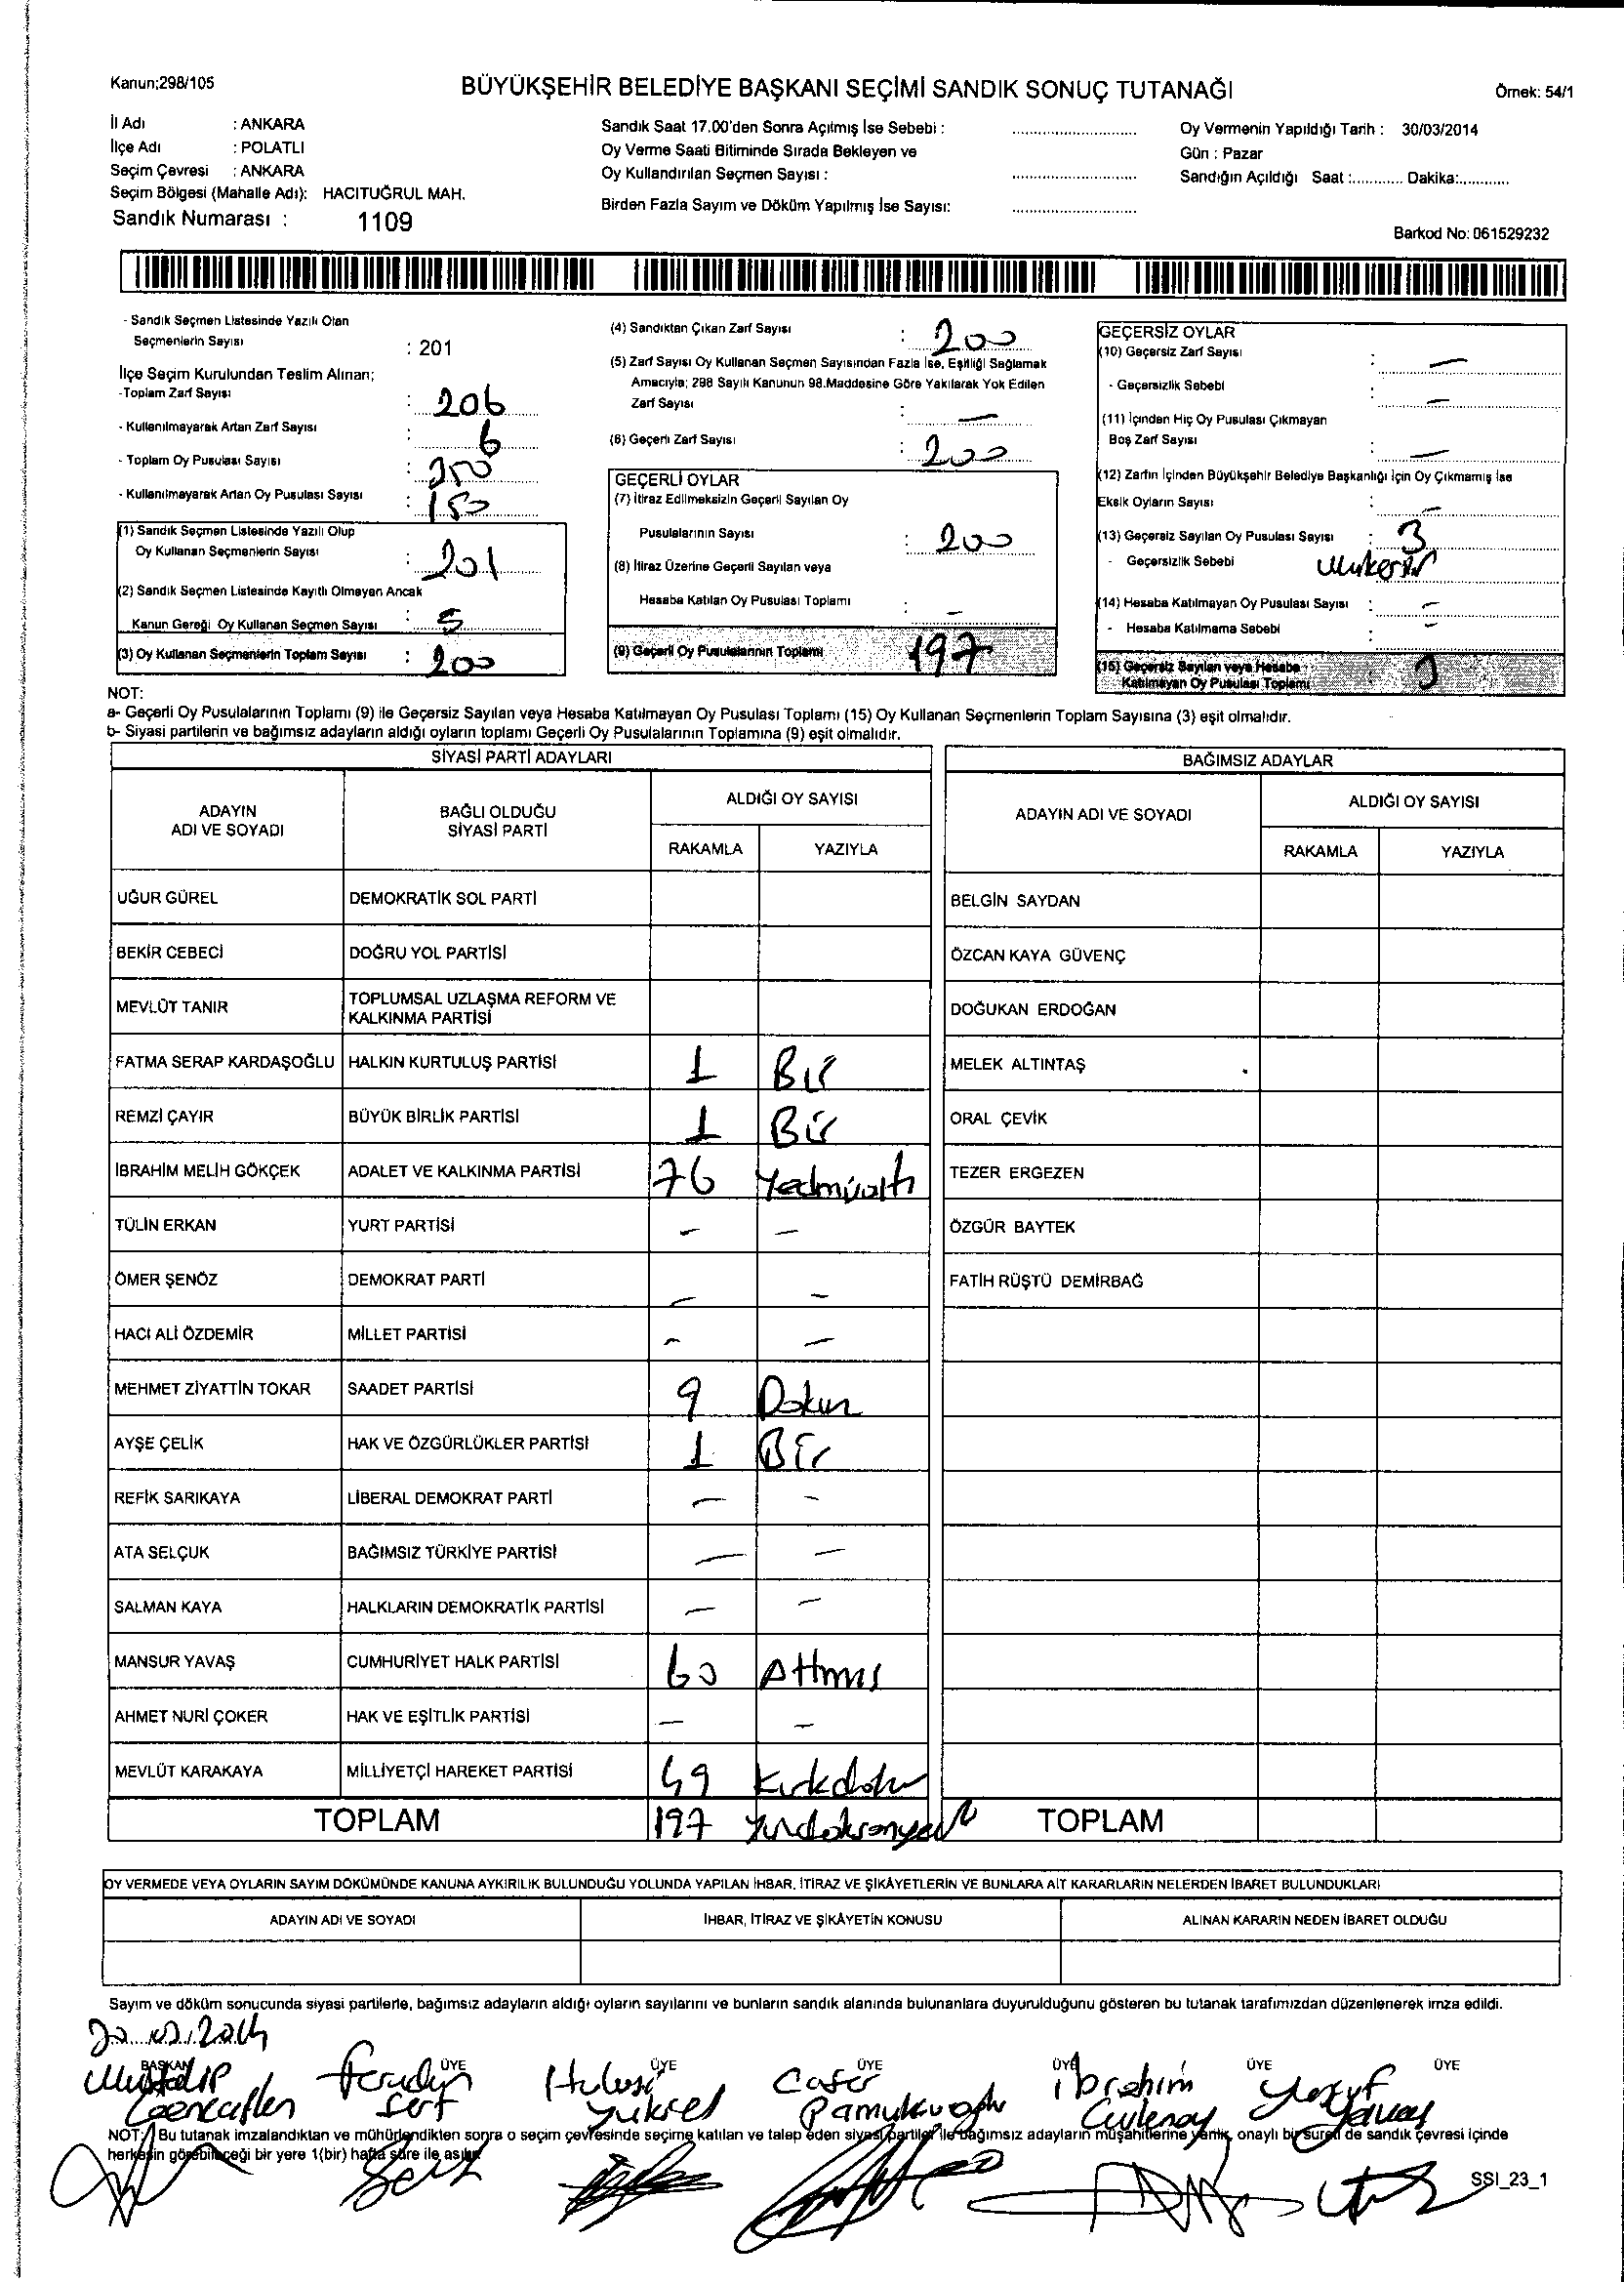 Kanun;298/105
BÜYÜKŞEHİR BELEDİYE BAŞKANI SEÇİMİ SANDIK SONUÇ TUTANAĞI
Örnek: 54/1
İl Adı : ANKARA
İlçe Adı : POLATLI
Seçim Çevresi : ANKARA
Seçim Bölgesi (Mahalle Adı): HACITUĞRUL MAH.
Sandık Numarası : 1109
Sandık Saat 17.00'den Sonra Açılmış İse Sebebi :
Oy Verme Saati Bitiminde Sırada Bekleyen ve
Oy Kullandırılan Seçmen Sayısı :
Birden Fazla Sayım ve Döküm Yapılmış İse Sayısı:
Oy Vermenin Yapıldığı Tarih : 30/03/2014
Gün : Pazar
Sandığın Açıldığı Saat :........... Dakika:...........
Barkod No: 061529232
- Sandık Seçmen Listesinde Yazılı Olan
Seçmenlerin Sayısı : 201
İlçe Seçim Kurulundan Teslim Alınan;
-Toplam Zarf Sayısı : 206
- Kullanılmayarak Artan Zarf Sayısı : 6
- Toplam Oy Pusulası Sayısı : 350
- Kullanılmayarak Artan Oy Pusulası Sayısı : 150
(1) Sandık Seçmen Listesinde Yazılı Olup
Oy Kullanan Seçmenlerin Sayısı : 201
(2) Sandık Seçmen Listesinde Kayıtlı Olmayan Ancak
Kanun Gereği Oy Kullanan Seçmen Sayısı : 5
(3) Oy Kullanan Seçmenlerin Toplam Sayısı : 200
(4) Sandıktan Çıkan Zarf Sayısı : 200
(5) Zarf Sayısı Oy Kullanan Seçmen Sayısından Fazla İse, Eşitliği Sağlamak
Amacıyla; 298 Sayılı Kanunun 98.Maddesine Göre Yakılarak Yok Edilen
Zarf Sayısı : —
(6) Geçerli Zarf Sayısı : 200
GEÇERLİ OYLAR
(7) İtiraz Edilmeksizin Geçerli Sayılan Oy
Pusulalarının Sayısı : 200
(8) İtiraz Üzerine Geçerli Sayılan veya
Hesaba Katılan Oy Pusulası Toplamı : —
(9) Geçerli Oy Pusulalarının Toplamı 197
GEÇERSİZ OYLAR
(10) Geçersiz Zarf Sayısı : —
- Geçersizlik Sebebi : —
(11) İçinden Hiç Oy Pusulası Çıkmayan
Boş Zarf Sayısı : —
(12) Zarfın İçinden Büyükşehir Belediye Başkanlığı İçin Oy Çıkmamış İse
Eksik Oyların Sayısı : —
(13) Geçersiz Sayılan Oy Pusulası Sayısı : 3
- Geçersizlik Sebebi
(14) Hesaba Katılmayan Oy Pusulası Sayısı : —
- Hesaba Katılmama Sebebi : —
(15) Geçersiz Sayılan veya Hesaba
Katılmayan Oy Pusulası Toplamı : 3
NOT:
a- Geçerli Oy Pusulalarının Toplamı (9) ile Geçersiz Sayılan veya Hesaba Katılmayan Oy Pusulası Toplamı (15) Oy Kullanan Seçmenlerin Toplam Sayısına (3) eşit olmalıdır.
b- Siyasi partilerin ve bağımsız adayların aldığı oyların toplamı Geçerli Oy Pusulalarının Toplamına (9) eşit olmalıdır.
SİYASİ PARTİ ADAYLARI
ADAYIN ADI VE SOYADI
BAĞLI OLDUĞU SİYASİ PARTİ
ALDIĞI OY SAYISI
RAKAMLA YAZIYLA
UĞUR GÜREL DEMOKRATİK SOL PARTİ
BEKİR CEBECİ DOĞRU YOL PARTİSİ
MEVLÜT TANIR TOPLUMSAL UZLAŞMA REFORM VE KALKINMA PARTİSİ
FATMA SERAP KARDAŞOĞLU HALKIN KURTULUŞ PARTİSİ 1 Bir
REMZİ ÇAYIR BÜYÜK BİRLİK PARTİSİ 1 Bir
İBRAHİM MELİH GÖKÇEK ADALET VE KALKINMA PARTİSİ 76 Yedmişaltı
TÜLİN ERKAN YURT PARTİSİ — —
ÖMER ŞENÖZ DEMOKRAT PARTİ — —
HACI ALİ ÖZDEMİR MİLLET PARTİSİ — —
MEHMET ZİYATTİN TOKAR SAADET PARTİSİ 9 Dokuz
AYŞE ÇELİK HAK VE ÖZGÜRLÜKLER PARTİSİ 1 Bir
REFİK SARIKAYA LİBERAL DEMOKRAT PARTİ — —
ATA SELÇUK BAĞIMSIZ TÜRKİYE PARTİSİ — —
SALMAN KAYA HALKLARIN DEMOKRATİK PARTİSİ — —
MANSUR YAVAŞ CUMHURİYET HALK PARTİSİ 60 Altmış
AHMET NURİ ÇOKER HAK VE EŞİTLİK PARTİSİ — —
MEVLÜT KARAKAYA MİLLİYETÇİ HAREKET PARTİSİ 49 Kırkdokuz
TOPLAM 197 Yüzdoksanyedi
BAĞIMSIZ ADAYLAR
ADAYIN ADI VE SOYADI
ALDIĞI OY SAYISI
RAKAMLA YAZIYLA
BELGİN SAYDAN
ÖZCAN KAYA GÜVENÇ
DOĞUKAN ERDOĞAN
MELEK ALTINTAŞ
ORAL ÇEVİK
TEZER ERGEZEN
ÖZGÜR BAYTEK
FATİH RÜŞTÜ DEMİRBAĞ
TOPLAM
OY VERMEDE VEYA OYLARIN SAYIM DÖKÜMÜNDE KANUNA AYKIRILIK BULUNDUĞU YOLUNDA YAPILAN İHBAR, İTİRAZ VE ŞİKÂYETLERİN VE BUNLARA AİT KARARLARIN NELERDEN İBARET BULUNDUKLARI
ADAYIN ADI VE SOYADI
İHBAR, İTİRAZ VE ŞİKÂYETİN KONUSU
ALINAN KARARIN NEDEN İBARET OLDUĞU
Sayım ve döküm sonucunda siyasi partilerle, bağımsız adayların aldığı oyların sayılarını ve bunların sandık alanında bulunanlara duyurulduğunu gösteren bu tutanak tarafımızdan düzenlenerek imza edildi.
BAŞKAN ÜYE ÜYE ÜYE ÜYE ÜYE ÜYE
Feradun Hulusi Cafer İbrahim Yusuf
Sert Yüksel Pamukuoğlu Yavaş
NOT: Bu tutanak imzalandıktan ve mühürlendikten sonra o seçim çevresinde seçime katılan ve talep eden siyasi partiler ile bağımsız adayların müşahitlerine verilir, onaylı bir sureti de sandık çevresi içinde
herkesin görebileceği bir yere 1(bir) hafta süre ile asılır.
SSI_23_1